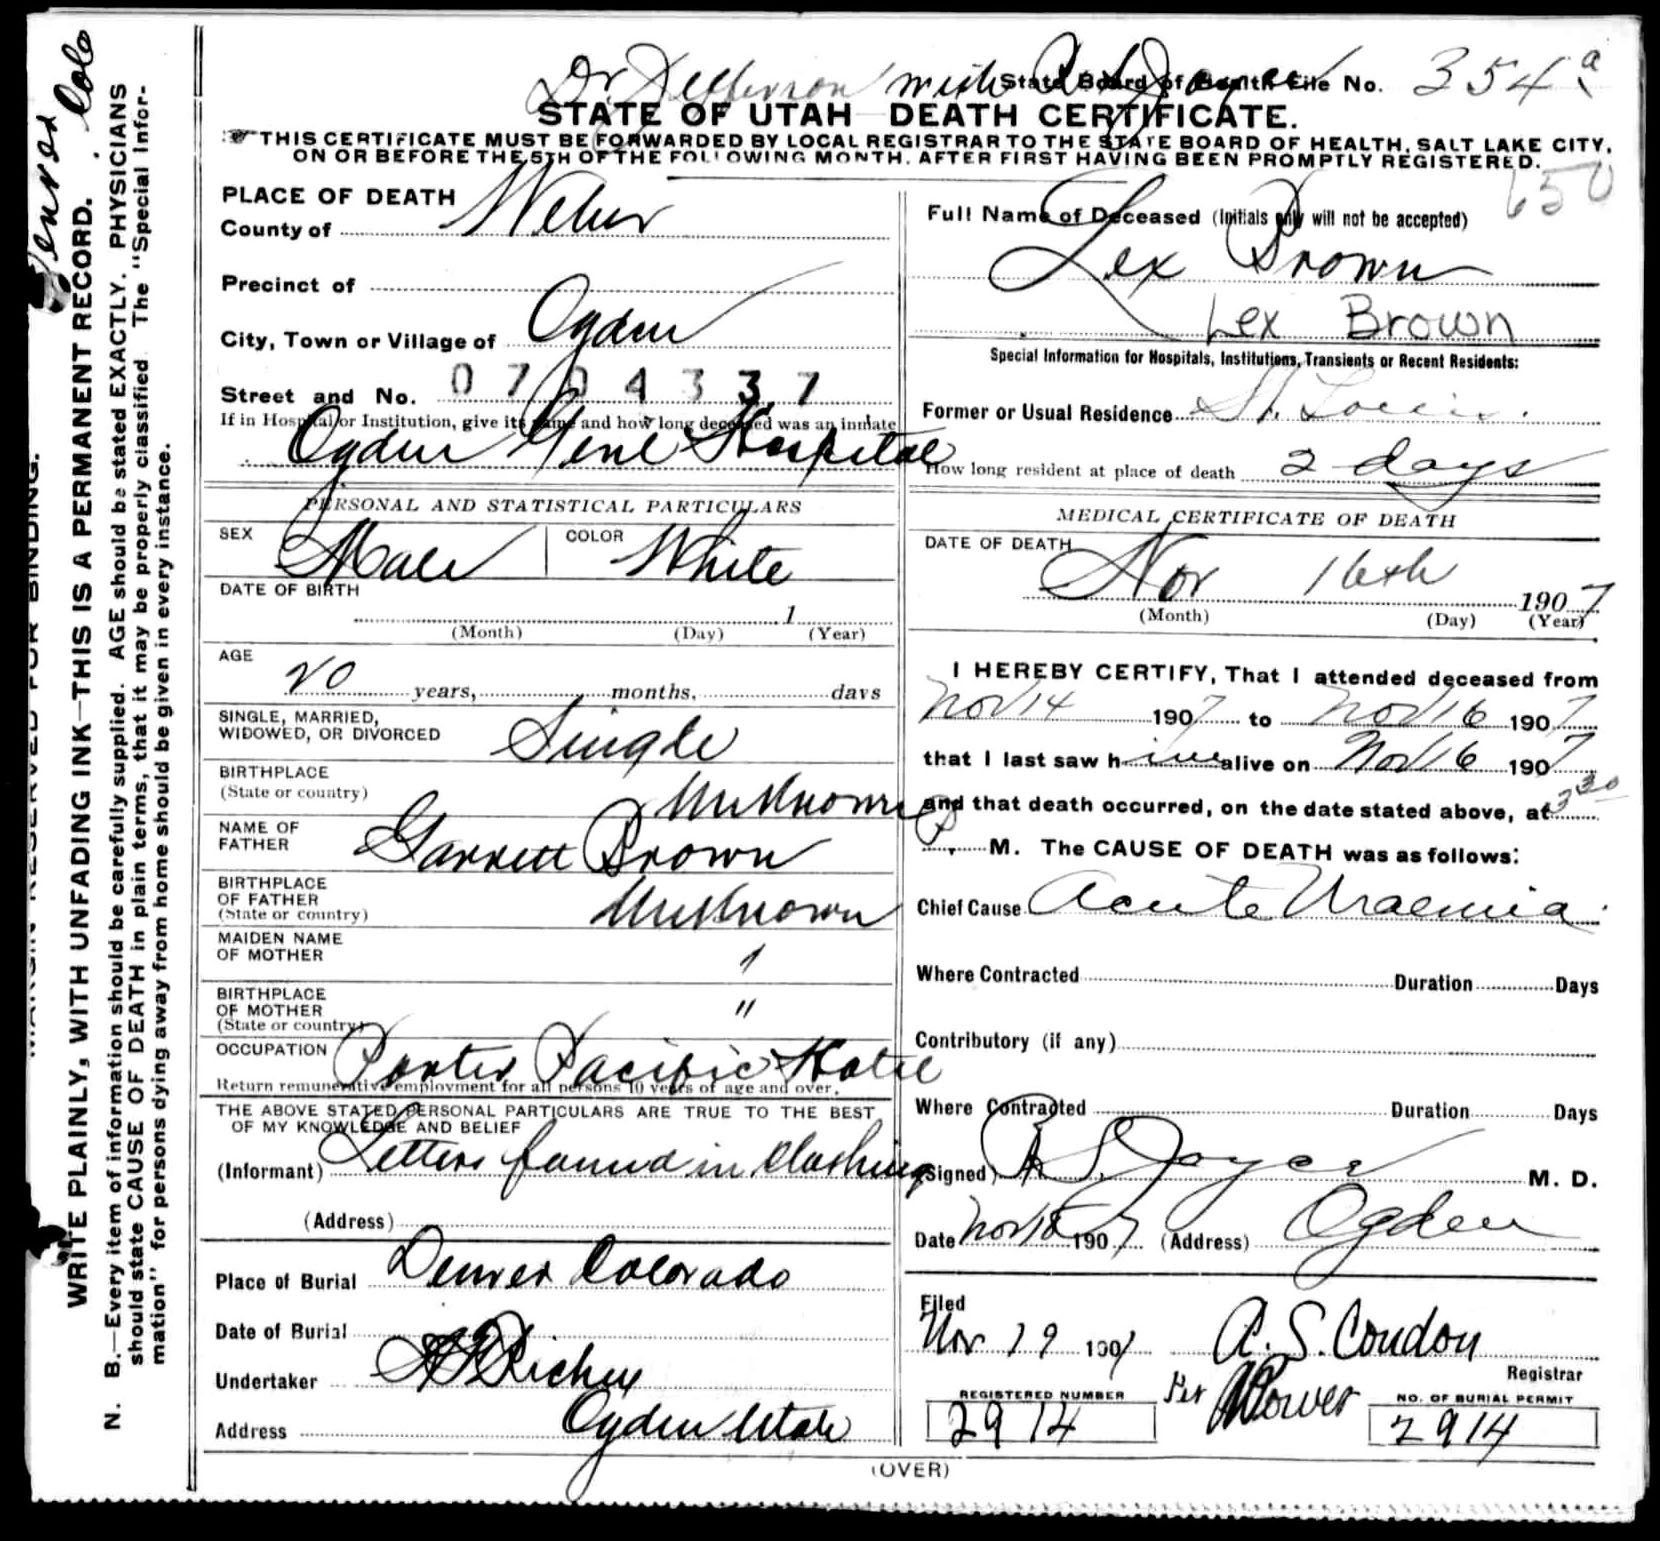 Dr. Jefferson with A. S. Joyce
State Board of Health File No. 354 a
STATE OF UTAH DEATH CERTIFICATE.
THIS CERTIFICATE MUST BE FORWARDED BY LOCAL REGISTRAR TO THE STATE BOARD OF HEALTH, SALT LAKE CITY,
ON OR BEFORE THE 5TH OF THE FOLLOWING MONTH, AFTER FIRST HAVING BEEN PROMPTLY REGISTERED.
650
PLACE OF DEATH
County of Weber
Precinct of
City, Town or Village of Ogden
Street and No. 0704337
If in Hospital or Institution, give its name and how long deceased was an inmate
Ogden Genl Hospital
PERSONAL AND STATISTICAL PARTICULARS
SEX Male COLOR White
DATE OF BIRTH
1
(Month) (Day) (Year)
AGE
20 years, months, days
SINGLE, MARRIED,
WIDOWED, OR DIVORCED Single
BIRTHPLACE
(State or country) Unknown
NAME OF
FATHER Garrett Brown
BIRTHPLACE
OF FATHER
(State or country) Unknown
MAIDEN NAME
OF MOTHER "
BIRTHPLACE
OF MOTHER
(State or country) "
OCCUPATION Porter Pacific Hotel
Return remunerative employment for all persons 10 years of age and over.
THE ABOVE STATED PERSONAL PARTICULARS ARE TRUE TO THE BEST
OF MY KNOWLEDGE AND BELIEF
(Informant) Letters found in Clothing
(Address)
Place of Burial Denver Colorado
Date of Burial
Undertaker Richey
Address Ogden Utah
Full Name of Deceased (Initials only will not be accepted)
Lex Brown
Lex Brown
Special Information for Hospitals, Institutions, Transients or Recent Residents:
Former or Usual Residence St. Louis.
How long resident at place of death 2 days
MEDICAL CERTIFICATE OF DEATH
DATE OF DEATH
Nov 16th 1907
(Month) (Day) (Year)
I HEREBY CERTIFY, That I attended deceased from
Nov 14 1907 to Nov 16 1907
that I last saw him alive on Nov 16 1907
and that death occurred, on the date stated above, at 3 30
P. M. The CAUSE OF DEATH was as follows:
Chief Cause Acute Uraemia.
Where Contracted Duration Days
Contributory (if any)
Where Contracted Duration Days
(Signed) A. S. Joyce M. D.
Date Nov 18 1907 (Address) Ogden
Filed
Nov 19 1907 A. S. Condon
Registrar
Per
REGISTERED NUMBER
2914
NO. OF BURIAL PERMIT
2914
(OVER)
Denver Colo
MARGIN RESERVED FOR BINDING.
WRITE PLAINLY, WITH UNFADING INK—THIS IS A PERMANENT RECORD.
N. B.—Every item of information should be carefully supplied. AGE should be stated EXACTLY. PHYSICIANS
should state CAUSE OF DEATH in plain terms, that it may be properly classified. The "Special Infor-
mation" for persons dying away from home should be given in every instance.